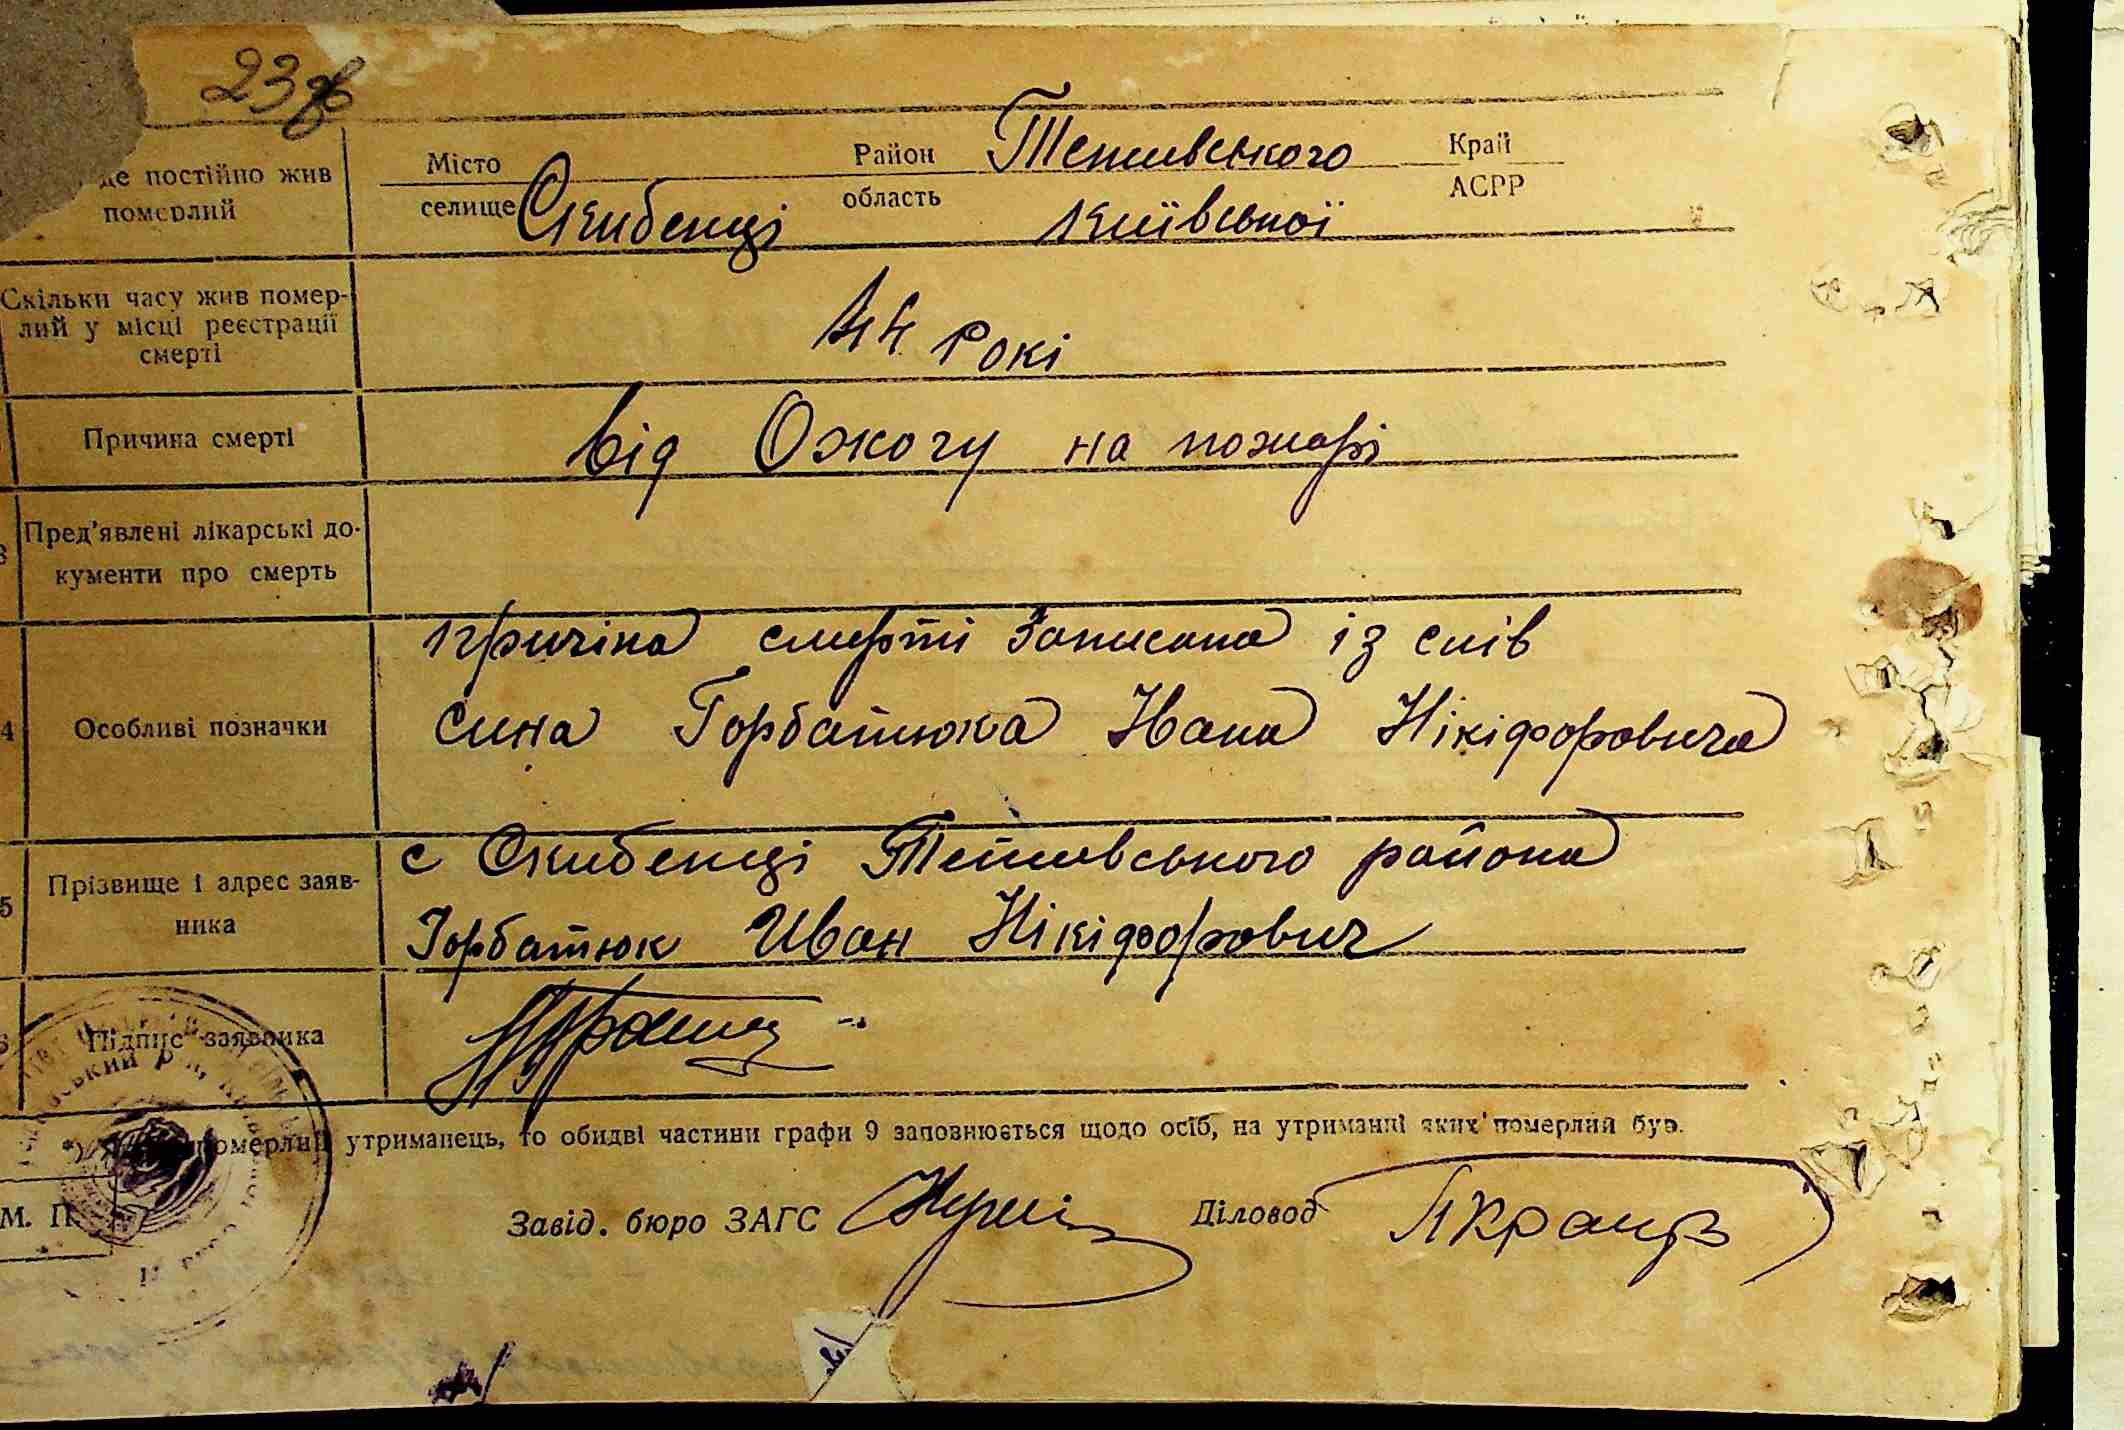 23
де постійно жив
померлий
Місто
селище Скибенці
Район Тетиевського
область Київської
Край
АСРР
Скільки часу жив помер-
лий у місці реєстрації
смерті
44 рокі
Причина смерті
від Ожогу на пожарі
Пред'явлені лікарські до-
кументи про смерть
4
Особливі позначки
причіна смерті Записана із слів
сина Горбатюка Ивана Нікіфоровича
5
Прізвище і адрес заяв-
ника
с Скибенці Тетиевського района
Горбатюк Иван Нікіфорович
Підпис заявника
померлий утриманець, то обидві частини графи 9 заповнюється щодо осіб, на утриманні яких померлий був.
М. П.
Завід. бюро ЗАГС
Діловод